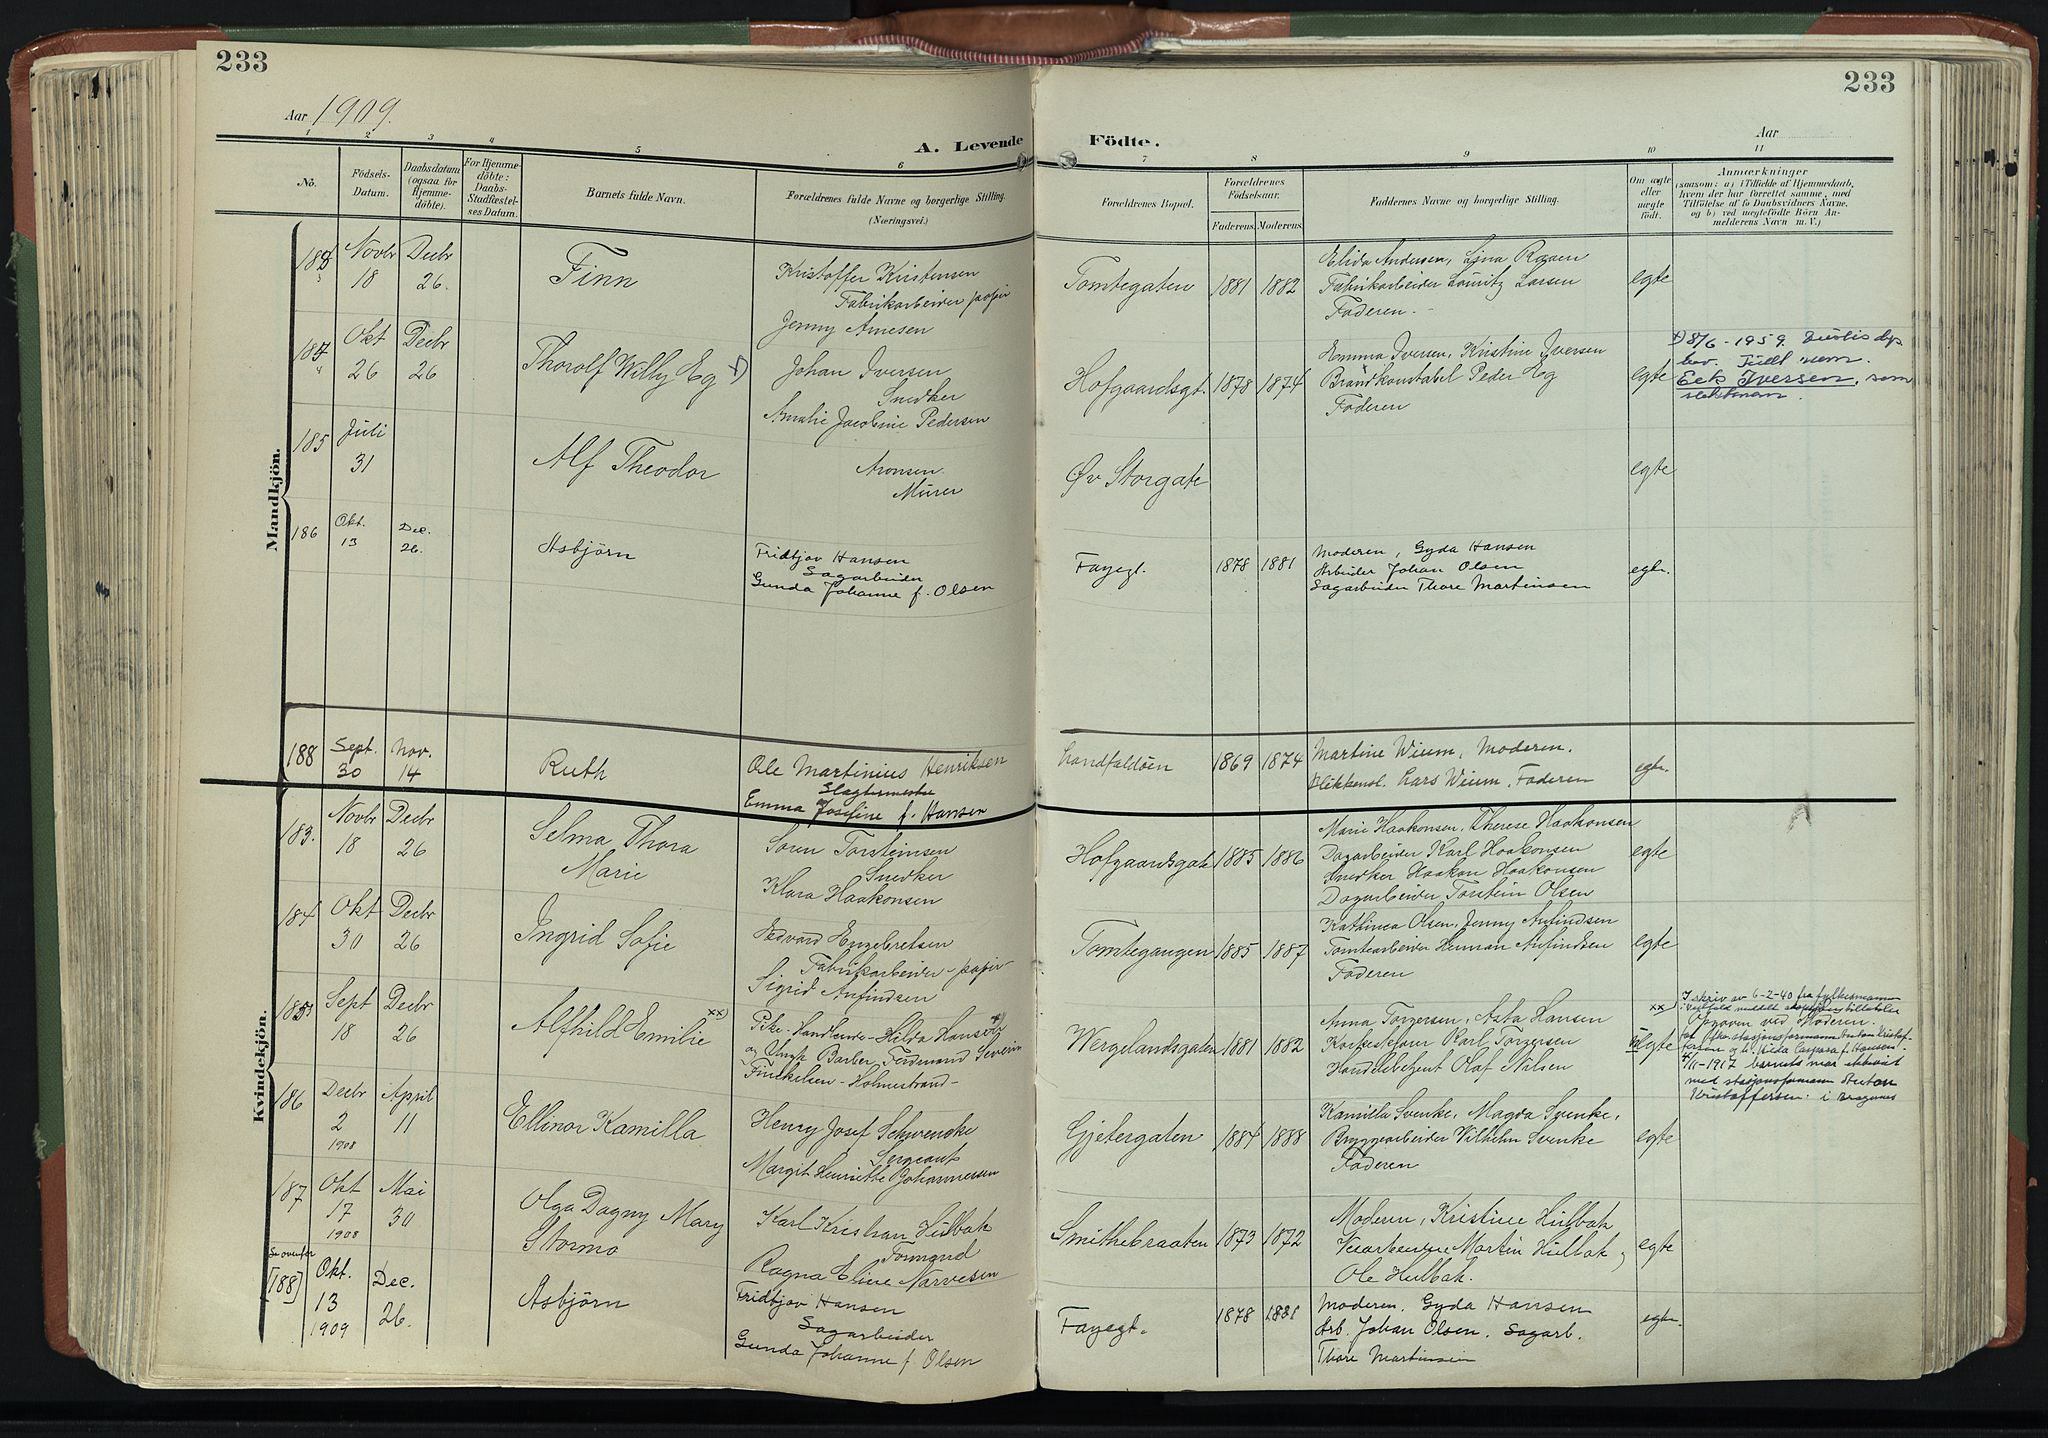 233
233
Aar 1909.
Aar
A. Levende Födte.
1 2 3 4 5 6 7 8 9 10 11
No.
Födsels-
Datum.
Daabsdatum
(ogsaa for
Hjemme-
döbte).
For Hjemme-
döbte:
Daabs-
Stadfæstel-
ses Datum.
Barnets fulde Navn.
Forældrenes fulde Navne og borgerlige Stilling.
(Næringsvei.)
Forældrenes Bopæl.
Forældrenes
Födselsaar.
Faderens. Moderens.
Faddernes Navne og borgerlige Stilling.
Om ægte
eller
uægte
födt.
Anmærkninger
(saasom: a) i Tilfælde af Hjemmedaab,
hvem der har forrettet samme, med
Tilföielse af to Daabsvidners Navne,
og b) ved uægtefödte Börn An-
melderens Navn m. V.)
Mandkjön.
Novbr
18
Decbr
26.
Finn
Kristoffer Kristensen
Fabrikarbeider papir
Jenny Arnesen
Tomtegaten
1881 1882
Elida Andersen, Lina Raaen
Fabrikarbeider Lauritz Larsen
Faderen.
egte
184
Okt
26
Decbr
26
Thorolf Willy Eg
Johan Iversen
Snedker
Amalie Jacobine Pedersen
Hofgaardsgt.
1878 1874
Emma Iversen, Kristine Iversen
Brandkonstabel Peder Eg
Faderen
egte
8/6-1959 Justis dep
bev. Tillt nem.
Eek Iversen, som
slektnavn.
185
Juli
31
Alf Theodor
Aronsen
Murer
Øv Storgate
egte
186
Okt.
13
Dec.
26.
Asbjörn
Fridtjov Hansen
Sagarbeider
Gunda Johanne f. Olsen
Fayegt.
1878 1881
Moderen, Gyda Hansen
Arbeider Johan Olsen
Sagarbeider Thore Martinsen
egte.
188
Sept.
30
Nov.
14
Ruth
Ole Martinius Henriksen
Slagtermester
Emma Josefine f. Hansen
Landfaldöen
1869 1874
Martine Wium, Moderen.
Blikkensl. Lars Wium, Faderen
egte.
Kvindekjön.
183.
Novbr
18
Decbr
26
Selma Thora
Marie
Søren Torsteinsen
Snedker
Klara Haakonsen
Hofgaardsgate
1885 1886
Marie Haakonsen, Therese Haakonsen
Dagarbeider Karl Haakonsen
Snedker Haakon Haakonsen
Dagarbeider Torstein Olsen
egte
184
Okt
30
Decbr
26
Ingrid Sofie
Edvard Engebretsen
Fabrikarbeider - papir
Sigrid Anfindsen
Tomtegangen
1885 1887
Kathinea Olsen, Jenny Anfindsen
Tomtearbeider Herman Anfindsen
Faderen
egte
185
Sept
18
Decbr
26
Alfhild Emilie xx)
Pike - Handlende - Hilda Hansen
og Ungk Barber Ferdinand Severin
Finckelsen - Holmestrand -
Wergelandsgaten
1881 1882
Anna Torgersen, Asta Hansen
Korkestefører Karl Torgersen
Handelsbetjent Olaf Nilsen
egte
xx) I skriv av 6-2-40 fra fylkesmannen
i Vestfold meddelt
Opgaven ved Moderen.
1917 barnets mor ektevid
med stasjonsformann Anton
Kristoffersen i Bragernes
186
Decbr
2
1908
April
11
Ellinor Kamilla
Henry Josef Schwencke
Sergeant
Margit Henriette Johannesen
Gjetergaten
1884 1888
Kamilla Svenke, Magda Svenke,
Bryggearbeider Vilhelm Svenke
Faderen
egte
187
Okt
17
1908
Mai
30
Olga Dagny Mary
Stormo
Karl Kristian Hulbak
Formand
Ragna Eline Narvesen
Smithebraaten
1873 1872
Moderen, Kristine Hulbak
Martin Hulbak,
Ole Hulbak.
egte
Se ovenfor
[188]
Okt.
13
1909
Dec.
26.
Asbjörn
Fridtjov Hansen
Sagarbeider
Gunda Johanne f. Olsen
Fayegt.
1878 1881
Moderen, Gyda Hansen
Arb. Johan Olsen. Sagarb.
Thore Martinsen
egte.